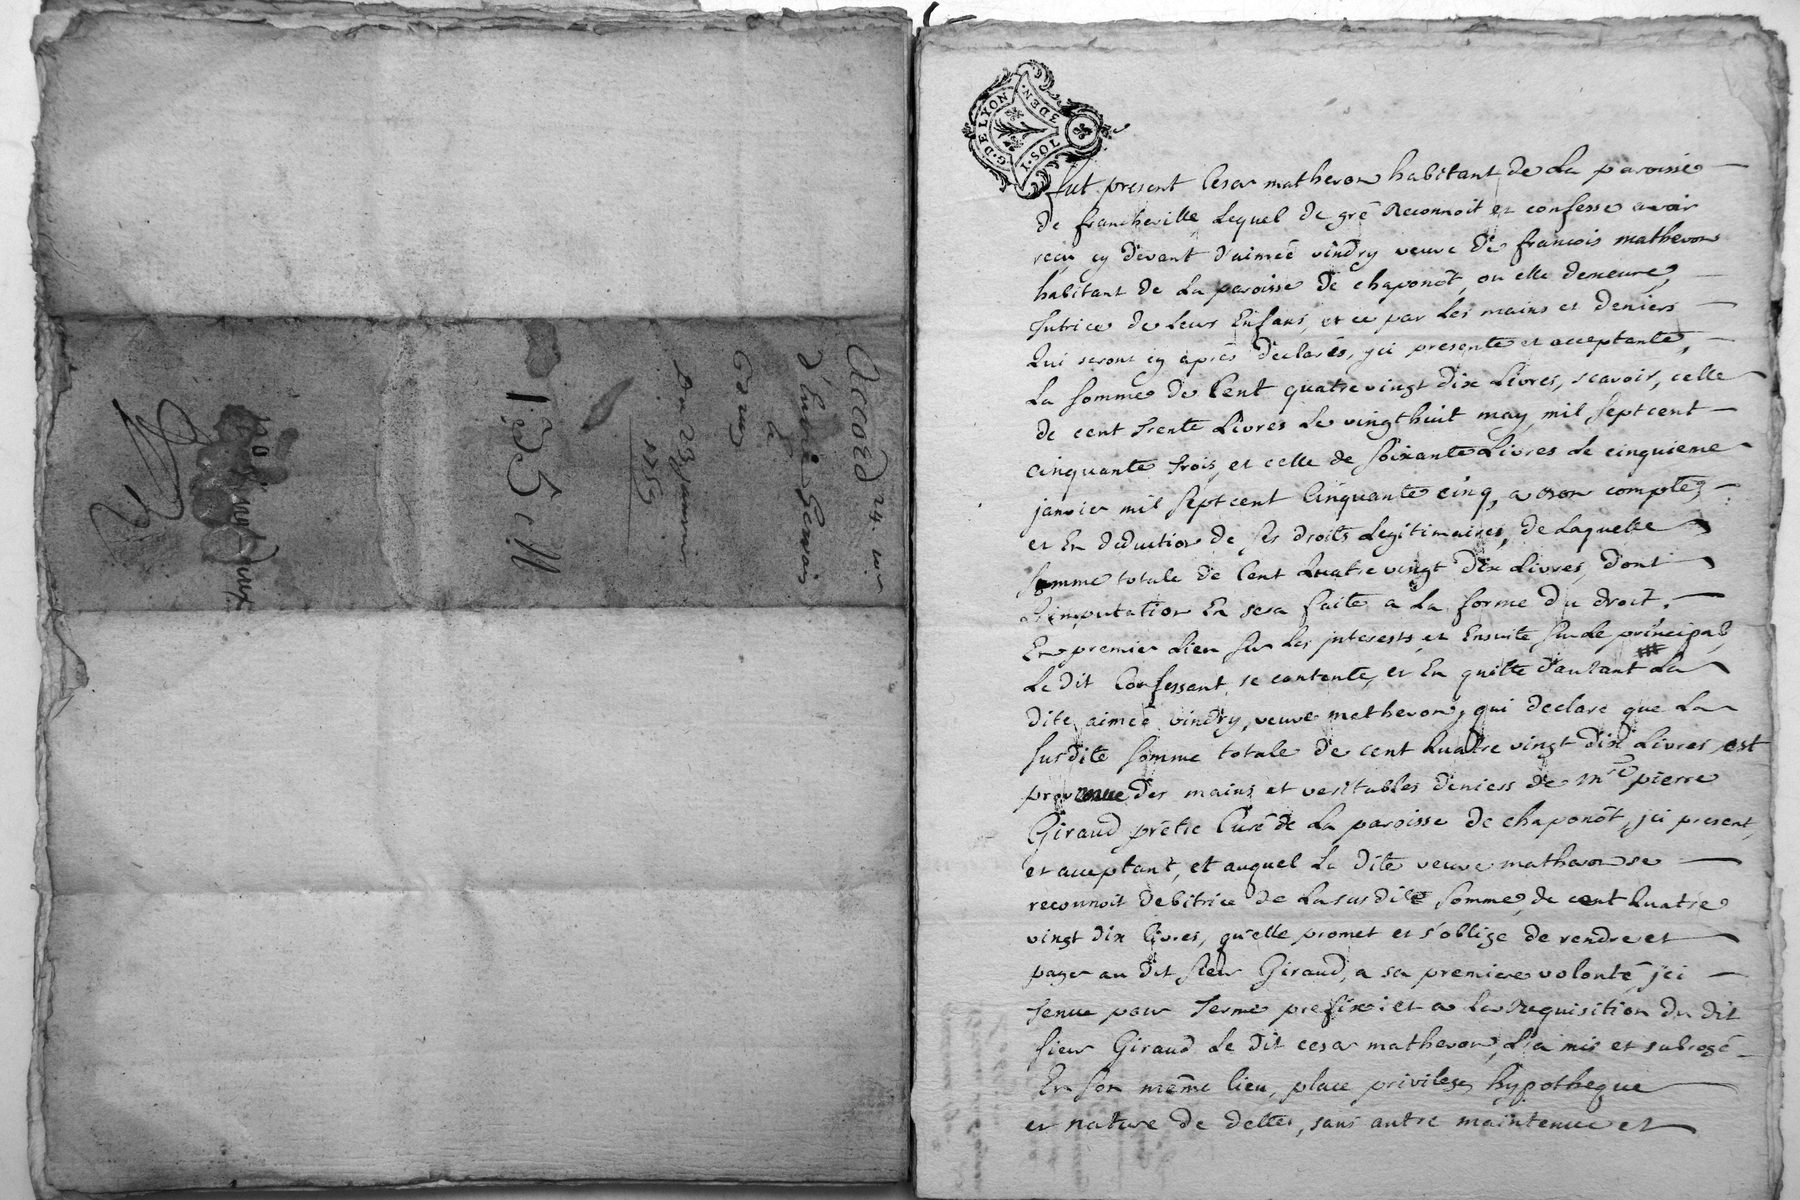 Accord 24. avr
d'honoré Gervais
&
Du 23 janvier
1753
G. DE LYON
1. SOL 3 DEN.
fut present Cesar matheron habitant de La paroisse
de francheville Lequel de gré Reconnoit et confesse avoir
reçu cy devant d'aimeé vindry veuve de francois matheron
habitant de La paroisse de chaponôt, ou elle demeure,
tutrice de leurs Enfans, et ce par les mains et deniers
Qui seront cy après declarés, jci presente et acceptante,
La somme de Cent quatre vingt dix Livres, scavoir, celle
de cent trente Livres Le vingt huit may, mil sept cent
cinquante trois, et celle de soixante Livres Le cinquieme
janvier mil sept cent Cinquante cinq, a bon compte,
et En deduction de ses droits Legitimaires, de Laquelle
somme totale de Cent Quatre vingt dix Livres, dont
L'imputation En sera faite a La forme du droit,
En premier Lieu sur Les jnterests, et Ensuite sur Le principal,
Le dit Confessant, se contente, et En quitte d'autant La
dite, aimeé vindry, veuve matheron, qui declare que La
susdite somme totale de cent Quatre vingt dix Livres est
provenue des mains et veritables deniers de mre pierre
Giraud prêtre Curé de La paroisse de chaponôt, jci present,
et acceptant, et auquel La dite veuve matheron se
reconnoit debitrice de La susdite somme, de cent Quatre
vingt dix livres, qu'elle promet et s'oblige de rendre et
payer au dit sieur Giraud, a sa premiere volonté, jci
tenue pour terme prefix; et a La Requisition du dit
sieur Giraud Le dit cesar matheron, L'a mis et subrogé
En son même lieu, place privilege, hypotheque
et nature de dettes, sans autre maintenue et